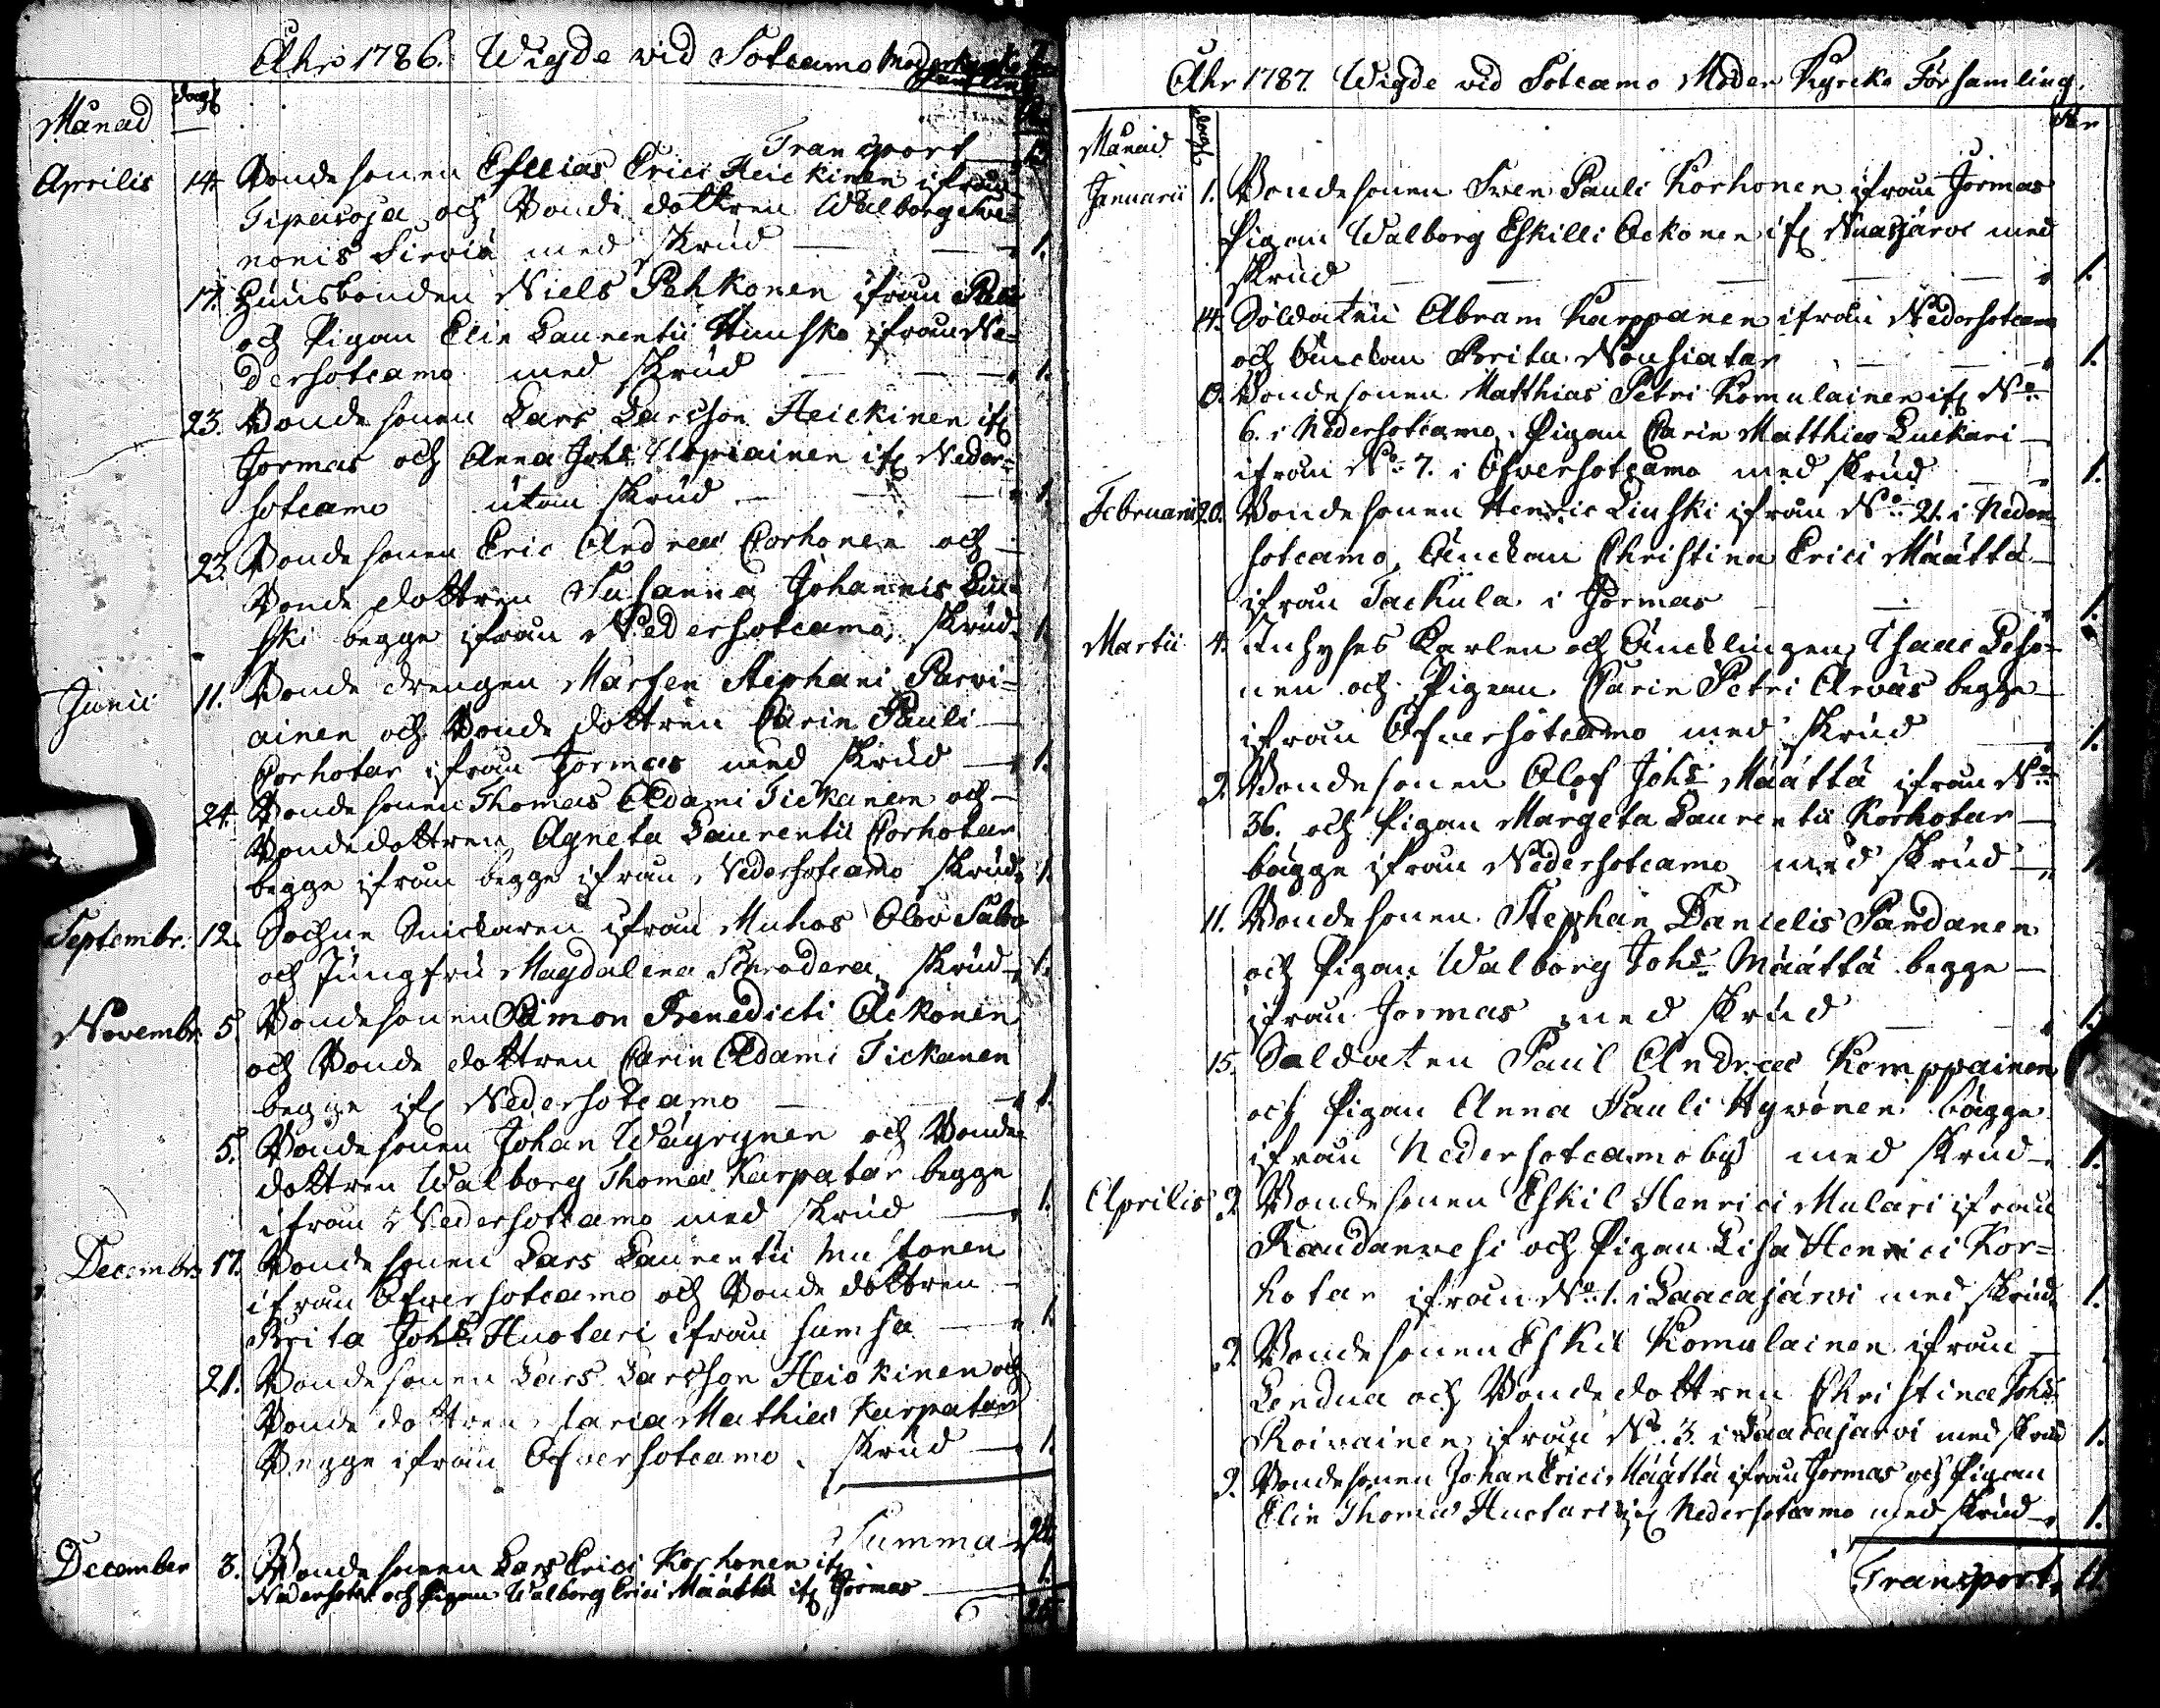 Åhr 1786. Wigde vid Sotcamo Moderkyrko
Månad dag
Transport
Aprilis 14. Bonde sonen Esaias Erici Heickinen ifrån
Tipasoja och Bonde dottren Walborg
nonis Sirviä med Skrud 1.
17. Husbonden Niels Pehkonen ifrån
och Pigan Elin Laurentii Hunsko ifrån Ne=
dersotcamo med Skrud 1.
23. Bonde sonen Lars Larsson Heickinen if
Jormas och Anna Johs Urpiainen if Neder=
sotcamo utom Skrud 1.
23. Bonde sonen Eric Andreæ Corhonen och
Bonde dottren Susanna Johannis Liu=
ski begge ifrån Nedersotcamo Skrud 1.
Junii 11. Bonde drengen Marten Stephani Parvi=
ainen och Bonde dottren Carin Pauli
Corhotar ifrån Jormas med Skrud 1.
24. Bonde sonen Thomas Adami Tickanen och
Bondedottren Agneta Laurentii Corhotar
begge ifrån begge ifrån Nedersotcamo Skrud 1.
Septembr. 12. Sochne Snickaren ifrån Muhos Olov Sabo
och Jungfru Magdalena Schroderæ Skrud 1.
Novembr. 5. Bondesonen Simon Benedicti Ackonen
och Bonde dottren Carin Adami Tickanen
begge if Nedersotcamo 1.
5. Bondesonen Johan Wäyrynen och Bonde
dottren Walborg Thomæ Karpatar begge
ifrån Nedersotcamo med Skrud 1.
Decembr. 17. Bonde sonen Lars Laurentii Mustonen
ifrån Öfversotcamo och Bonde dottren
Brita Johs Huotari ifrån Sumsa 1.
21. Bonde sonen Lars Larsson Heickinen och
Bonde dottren Maria Mathiæ Karpatar
Begge ifrån Öfversotcamo Skrud 1.
Summa 24.
December 3. Bonde sonen Lars Erici Korhonen if
Nedersotc och Pigan Walborg Erici Määttä if Jormas 1.
25
Åhr 1787. Wigde vid Sotcamo Moder Kyrcko Församling.
Månad dag
Januarii 1. Bondesonen Sven Pauli Korhonen ifrån Jormas
Pigan Walborg Eskilli Ackonen if Nuasjärvi med
Skrud 1.
14. Soldaten Abram Karppanen ifrån Nedersotcamo
och Änckan Brita Nousiatar 1.
Bondesonen Matthias Petri Komulainen if No
6. i Nedersotcamo, Pigan Carin Matthiæ Luckari
ifrån No 7. i Öfversotcamo med Skrud 1.
Februarii 20. Bonde sonen Henric Liuski ifrån No 21. i Neder
sotcamo, Änckan Christina Erici Määttä
ifrån Tackula i Jormas 1.
Martii 4. Inhyses Karlen och Äncklingen Isaac Leso=
nen och Pigan Carin Petri Arväs begge
ifrån Öfversotcamo med Skrud 1.
9. Bondesonen Olof Johs Määttä ifrån No
36. och Pigan Margeta Laurentii Korhotar
bägge ifrån Nedersotcamo med Skrud 1
11. Bonde sonen Stephan Danielis Pandanen
och Pigan Walborg Johs Määttä begge
ifrån Jormas med Skrud 1.
15. Soldaten Paul Andreæ Kemppainen
och Pigan Anna Pauli Hyvönen bägge
ifrån Nedersotcamo by med Skrud 1.
Aprilis 2 Bondesonen Eskil Henrici Mulari ifrån
Randanvesi och Pigan Lisa Henrici Kor=
hotar ifrån No 1. i Laacajärvi med Skrud 1.
2 Bondesonen Eskil Komulainen ifrån
Lendua och Bondedottren Christina Johs
Roivainen ifrån No 3. i Laacajärvi med Skrud 1.
9. Bondesonen Johan Erici Määttä ifrån Jormas och Pigan
Elin Thomæ Huotari if Nedersotcamo med Skrud 1.
Transport 11